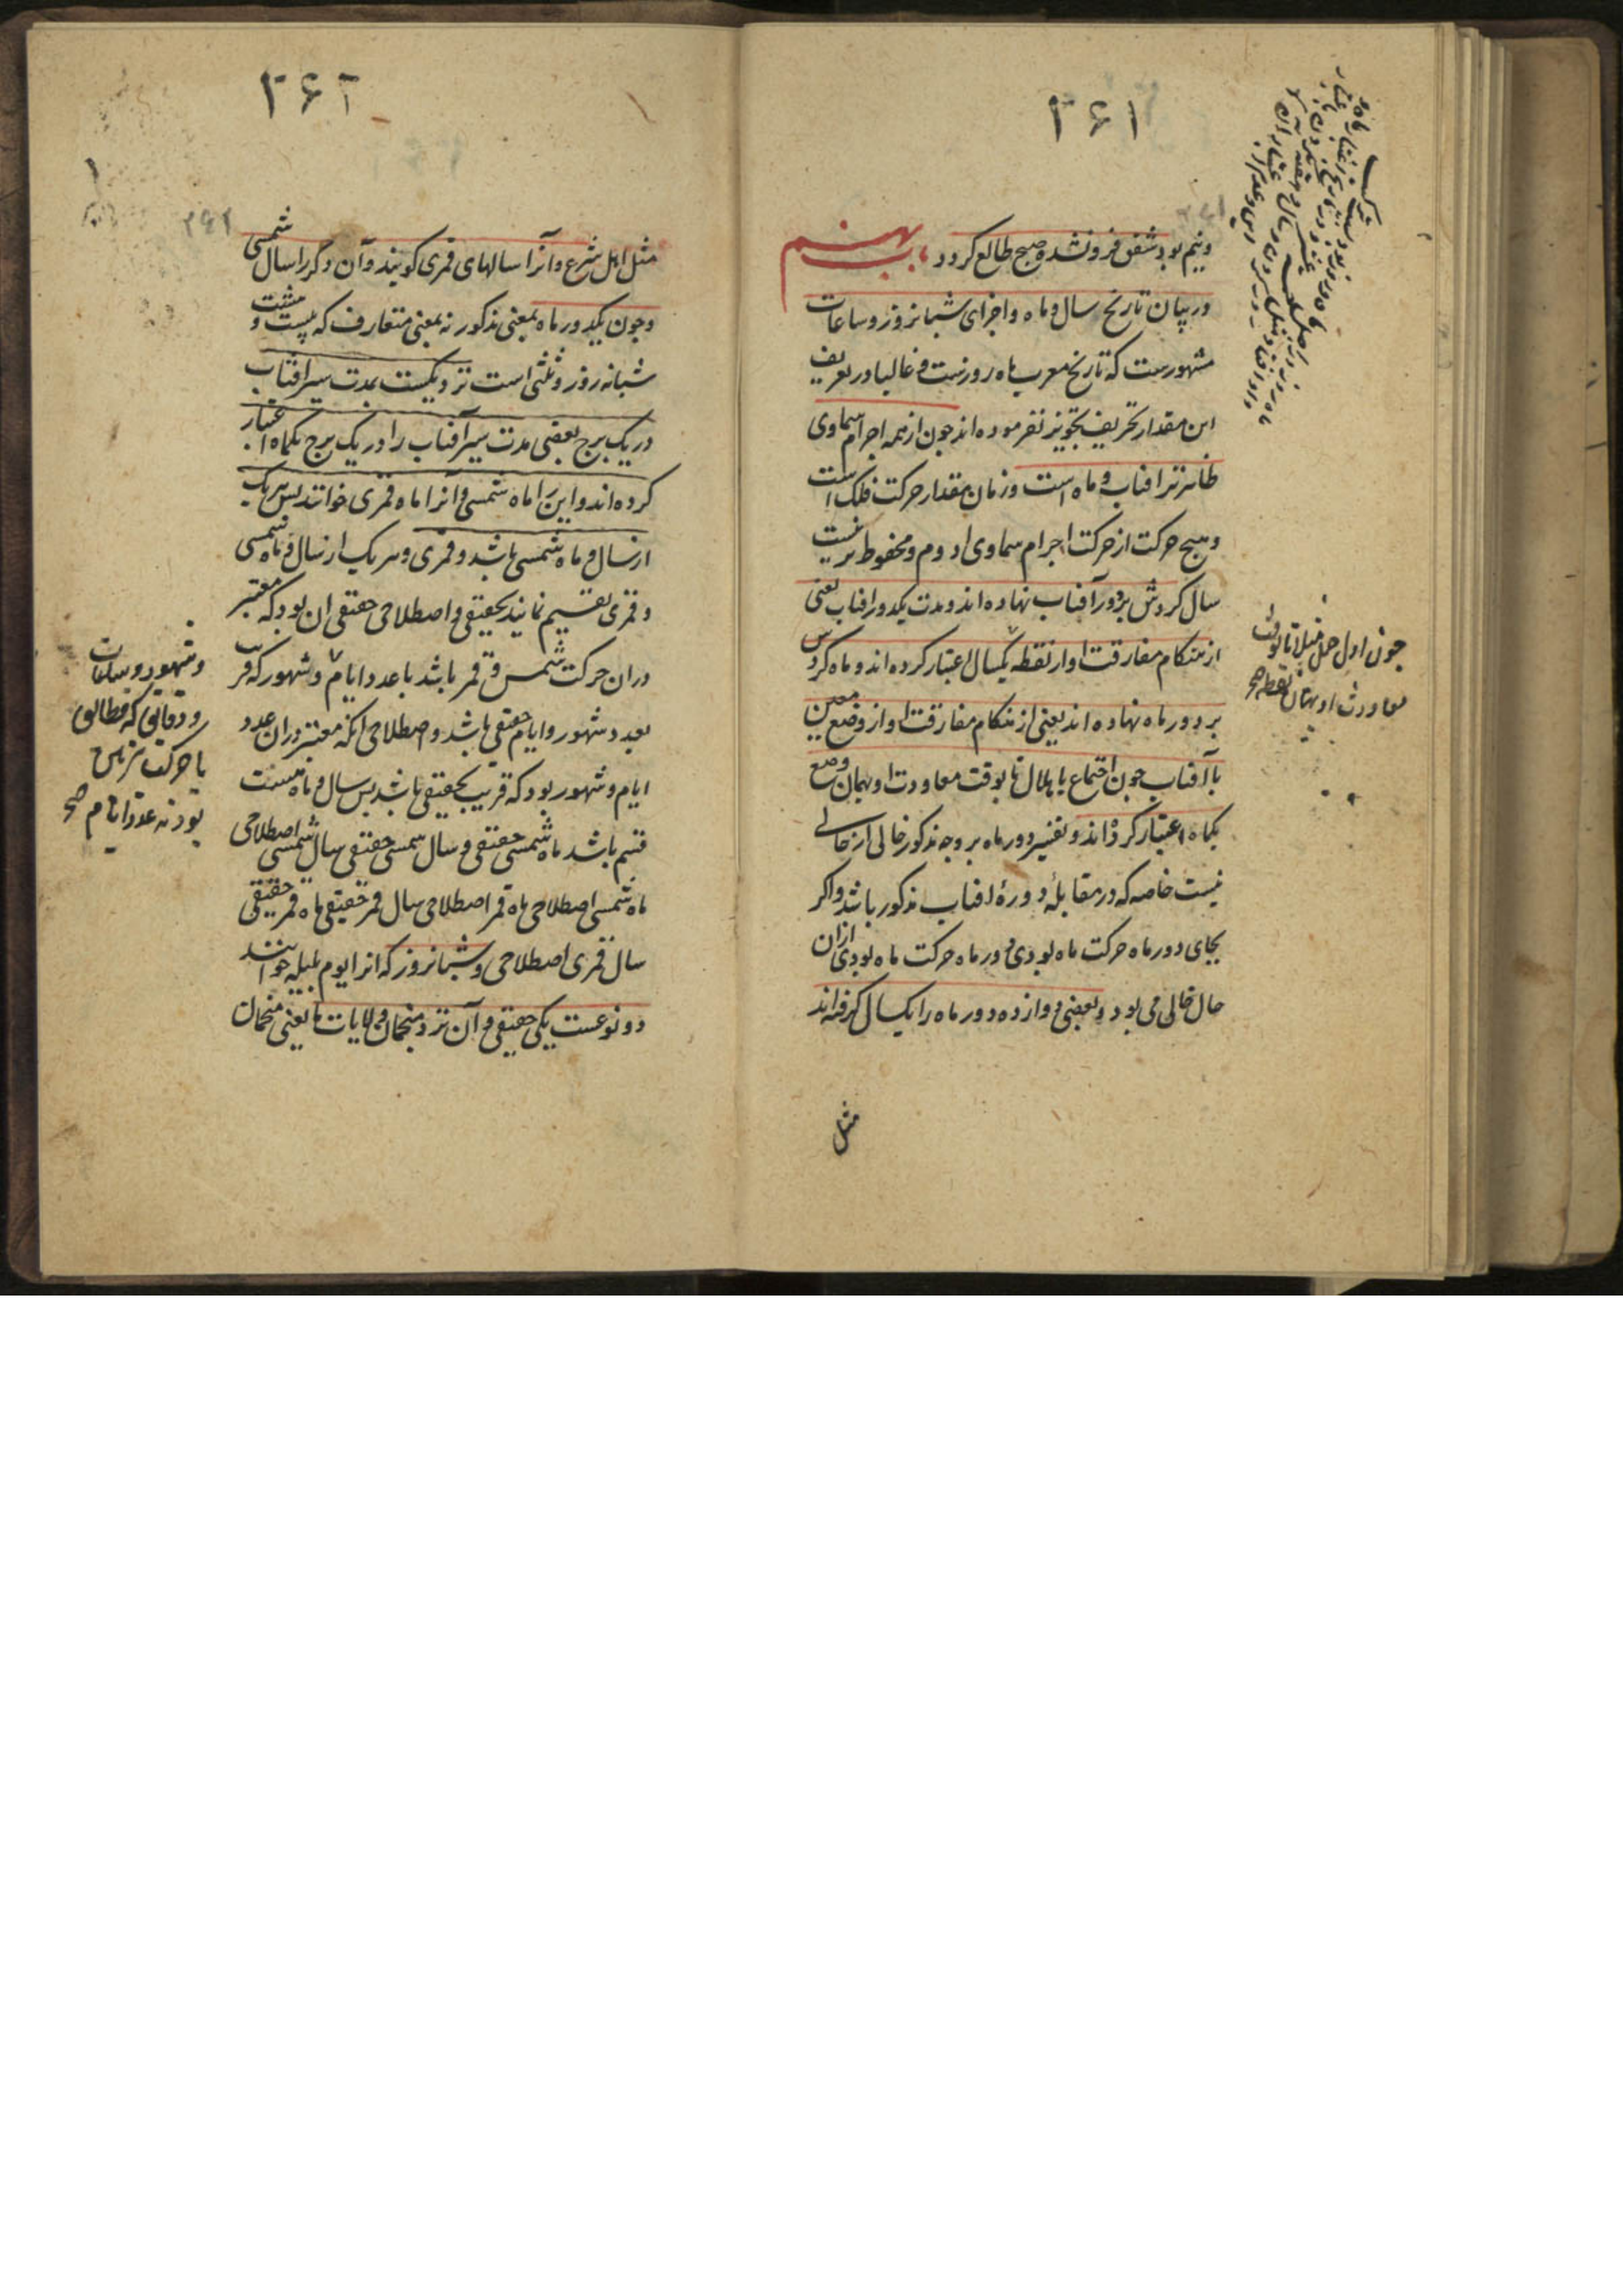 ۲۶۱
ونیم بود شفق فرو نشده صبح طالع کردد باب نهم
در بیان تاریخ سال و ماه و اجزای شبانروز و ساعات
مشهورست که تاریخ معرب ماه روزست و غالبا در تعریف
این مقدار تحریف تجویز نفرموده اند چون از همه اجرام سماوی
ظاهرتر افتاب و ماه است و زمان مقدار حرکت فلک است
و هیچ حرکت از حرکت اجرام سماوی ادوم و محفوظ تر نیست
سال کردش بر دور آفتاب نهاده اند و مدت یکدور افتاب یعنی
از هنکام مفارقت او از نقطه یکسال اعتبار کرده اند و ماه کردش
بر دور ماه نهاده اند یعنی از هنکام مفارقت او از وضع معین
با آفتاب چون اجتماع یا هلال تا بوقت معاودت او بهمان وضع
یکماه اعتبار کرده اند و تفسیر دور ماه بر وجه مذکور خالی از حالی
نیست خاصه که در مقابلهٔ دورهٔ افتاب مذکور باشد و اکر
بجای دور ماه حرکت ماه بودی دور ماه حرکت ماه بودی ازان
حال خالی می بود و بعضی دوازده دور ماه را یکسال کرفته اند
مثل
چون اول حمل مثلا تا بوقت
معاودت او بهمان نقطه صح
۲۶۲
مثل اهل شرع و آنرا سالهای قمری کویند و آن دکر را سال شمسی
و چون یکدور ماه بمعنی مذکور نه بمعنی متعارف که بیست و هشت
شبانه روز و ثلثی است نزدیکست بمدت سیر افتاب
در یک برج بعضی مدت سیر آفتاب را در یک برج یکماه اعتبار
کرده اند و این را ماه شمسی و آنرا ماه قمری خوانند پس هر یک
از سال و ماه شمسی باشد و قمری و هر یک از سال و ماه شمسی
و قمری تقسیم نمایند بحقیقی و اصطلاحی حقیقی ان بود که معتبر
دران حرکت شمس و قمر باشد با عدد ایام و شهور که قریب
بعدد شهور و ایام حقیقی باشد و اصطلاحی انکه معتبر دران عدد
ایام و شهور بود که قریب بحقیقی باشد پس سال و ماه هشت
قسم باشد ماه شمسی حقیقی و سال شمسی حقیقی سال شمسی اصطلاحی
ماه شمسی اصطلاحی ماه قمر اصطلاحی سال قمر حقیقی ماه قمر حقیقی
سال قمری اصطلاحی و شبانروز که انرا یوم بلیله خوانند
دو نوعست یکی حقیقی و آن نزد منجمان ولایات ما یعنی منجمان
و شهور و ساعات
و دقایق که مطابق
با حرکت
بود نه عدد ایام صح